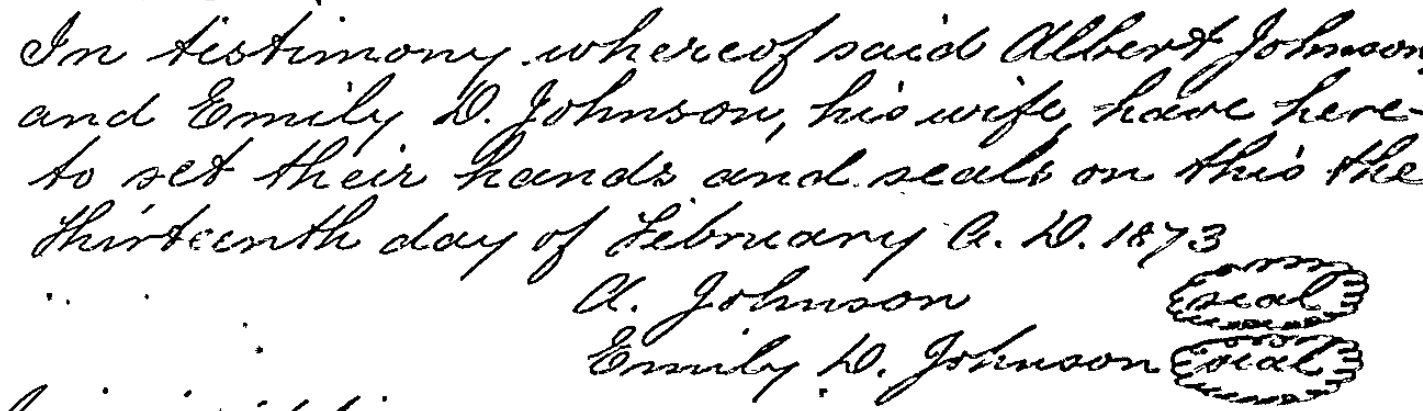 In testimony whereof said Albert Johnson,
and Emily D. Johnson, his wife, have here-
to set their hands and seals on this the
thirteenth day of February A. D. 1873
A. Johnson (seal)
Emily D. Johnson (seal)